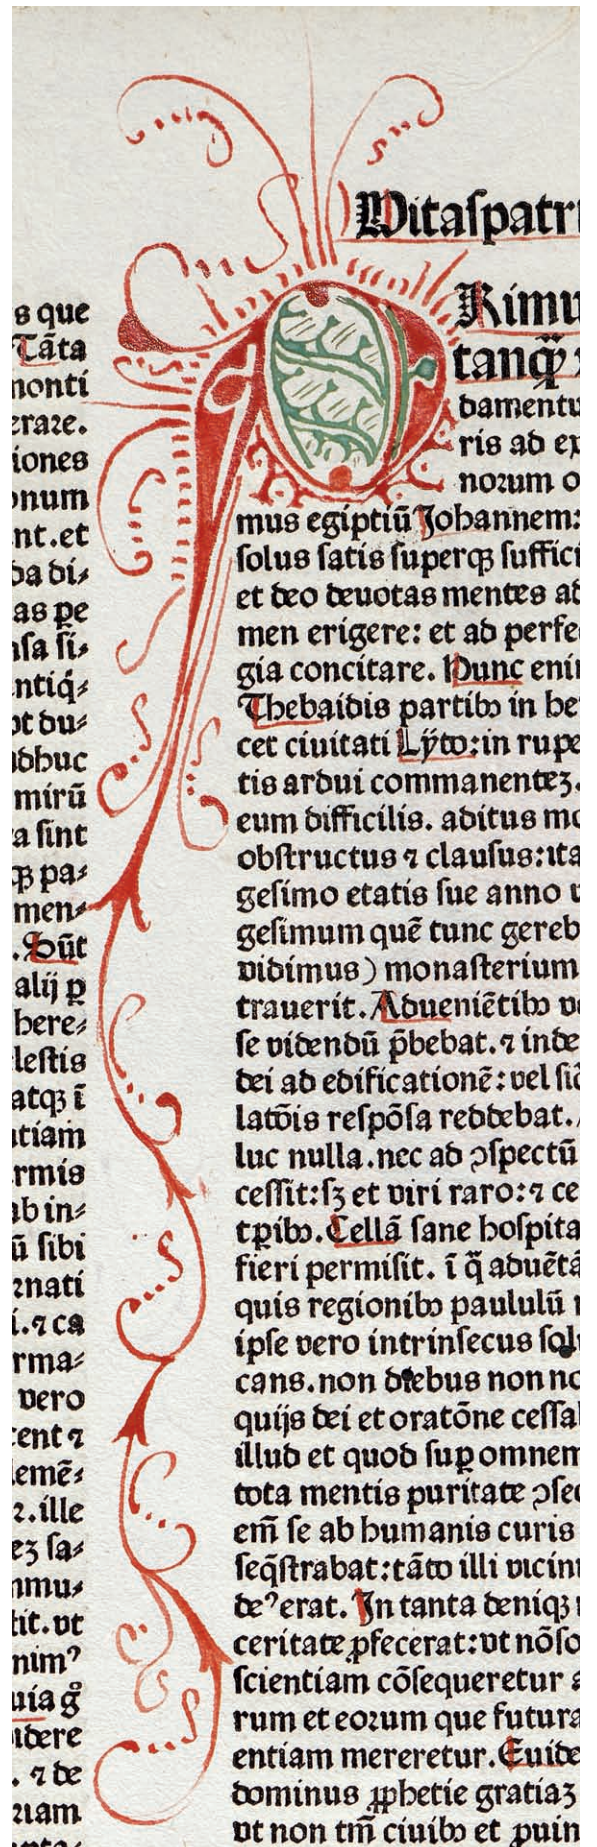 s que
Tãta
monti
erare.
iones
onum
nt.et
ba di⸗
as ꝑe
nsa si⸗
ntiq́⸗
ot du⸗
adhuc
mirũ
a sint
qꝫ pa⸗
men⸗
.Sũt
alij ꝑ
here⸗
lestis
atqꝫ ĩ
ntiam
rmis
ab in⸗
ũ sibi
rnati
i.⁊ ca
rma⸗
vero
cent ⁊
lemẽ⸗
r.ille
eꝫ sa⸗
mmu⸗
tit.vt
nimꝰ
uia g̊
idere
. ⁊ de
riam
Vitaſpatr
P Rimu
tanqꝫ̃
damentu
ris ad ex
norum o
mus egiptiũ Johannem:
ſolus ſatis ſuperqꝫ ſuffici
et deo deuotas mentes ad
men erigere: et ad perfe
gia concitare. Hunc enim
Thebaidis partibꝰ in he
cet ciuitati Lÿto:in rupe
tis ardui commanenteꝫ.
eum difficilis. aditus mo
obſtructus ⁊ clauſus:ita
geſimo etatis ſue anno v
geſimum quẽ tunc gereb
vidimus) monaſterium
trauerit. Adueniẽtibꝰ v
ſe videndũ p̃bebat.⁊ inde
dei ad edificationẽ: vel ſic̃
latõis reſpõſa reddebat.
luc nulla.nec ad ↄſpectũ
ceſſit:ſꝫ et viri raro:⁊ ce
tꝑibꝰ. Cellã ſane hoſpita
fieri permiſit. ĩ q̃ aduẽtã
quis regionibꝰ paululũ
ipſe vero intrinſecus ſolu
cans.non diebus non no
quijs dei et oratõne ceſſa
illud et quod ſuꝑ omnem
tota mentis puritate ↄſe
em̃ ſe ab humanis curis
ſeq̃ſtrabat:tãto illi vicin
deꝰerat. In tanta deniqꝫ
ceritate ꝓfecerat:vt nõſo
ſcientiam cõſequeretur
rum et eorum que futura
entiam mereretur. Euide
dominus ꝓphetie gratiaꝫ
vt non tm̃ ciuibꝰ et ꝓuin